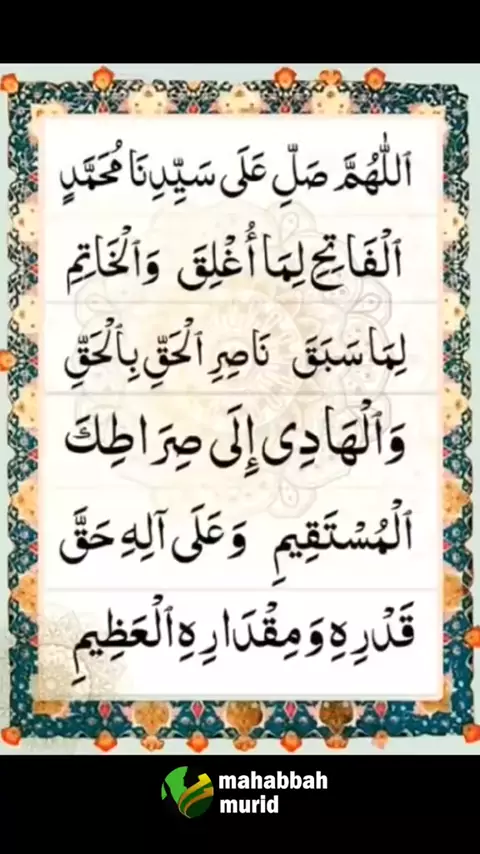 ٱللّٰهُمَّ صَلِّ عَلَى سَيِّدِنَا مُحَمَّدٍ
ٱلْفَاتِحِ لِمَا أُغْلِقَ وَٱلْخَاتِمِ
لِمَا سَبَقَ نَاصِرِ ٱلْحَقِّ بِٱلْحَقِّ
وَٱلْهَادِى إِلَى صِرَاطِكَ
ٱلْمُسْتَقِيمِ وَعَلَى آلِهِ حَقَّ
قَدْرِهِ وَمِقْدَارِهِ ٱلْعَظِيمِ
mahabbah
murid